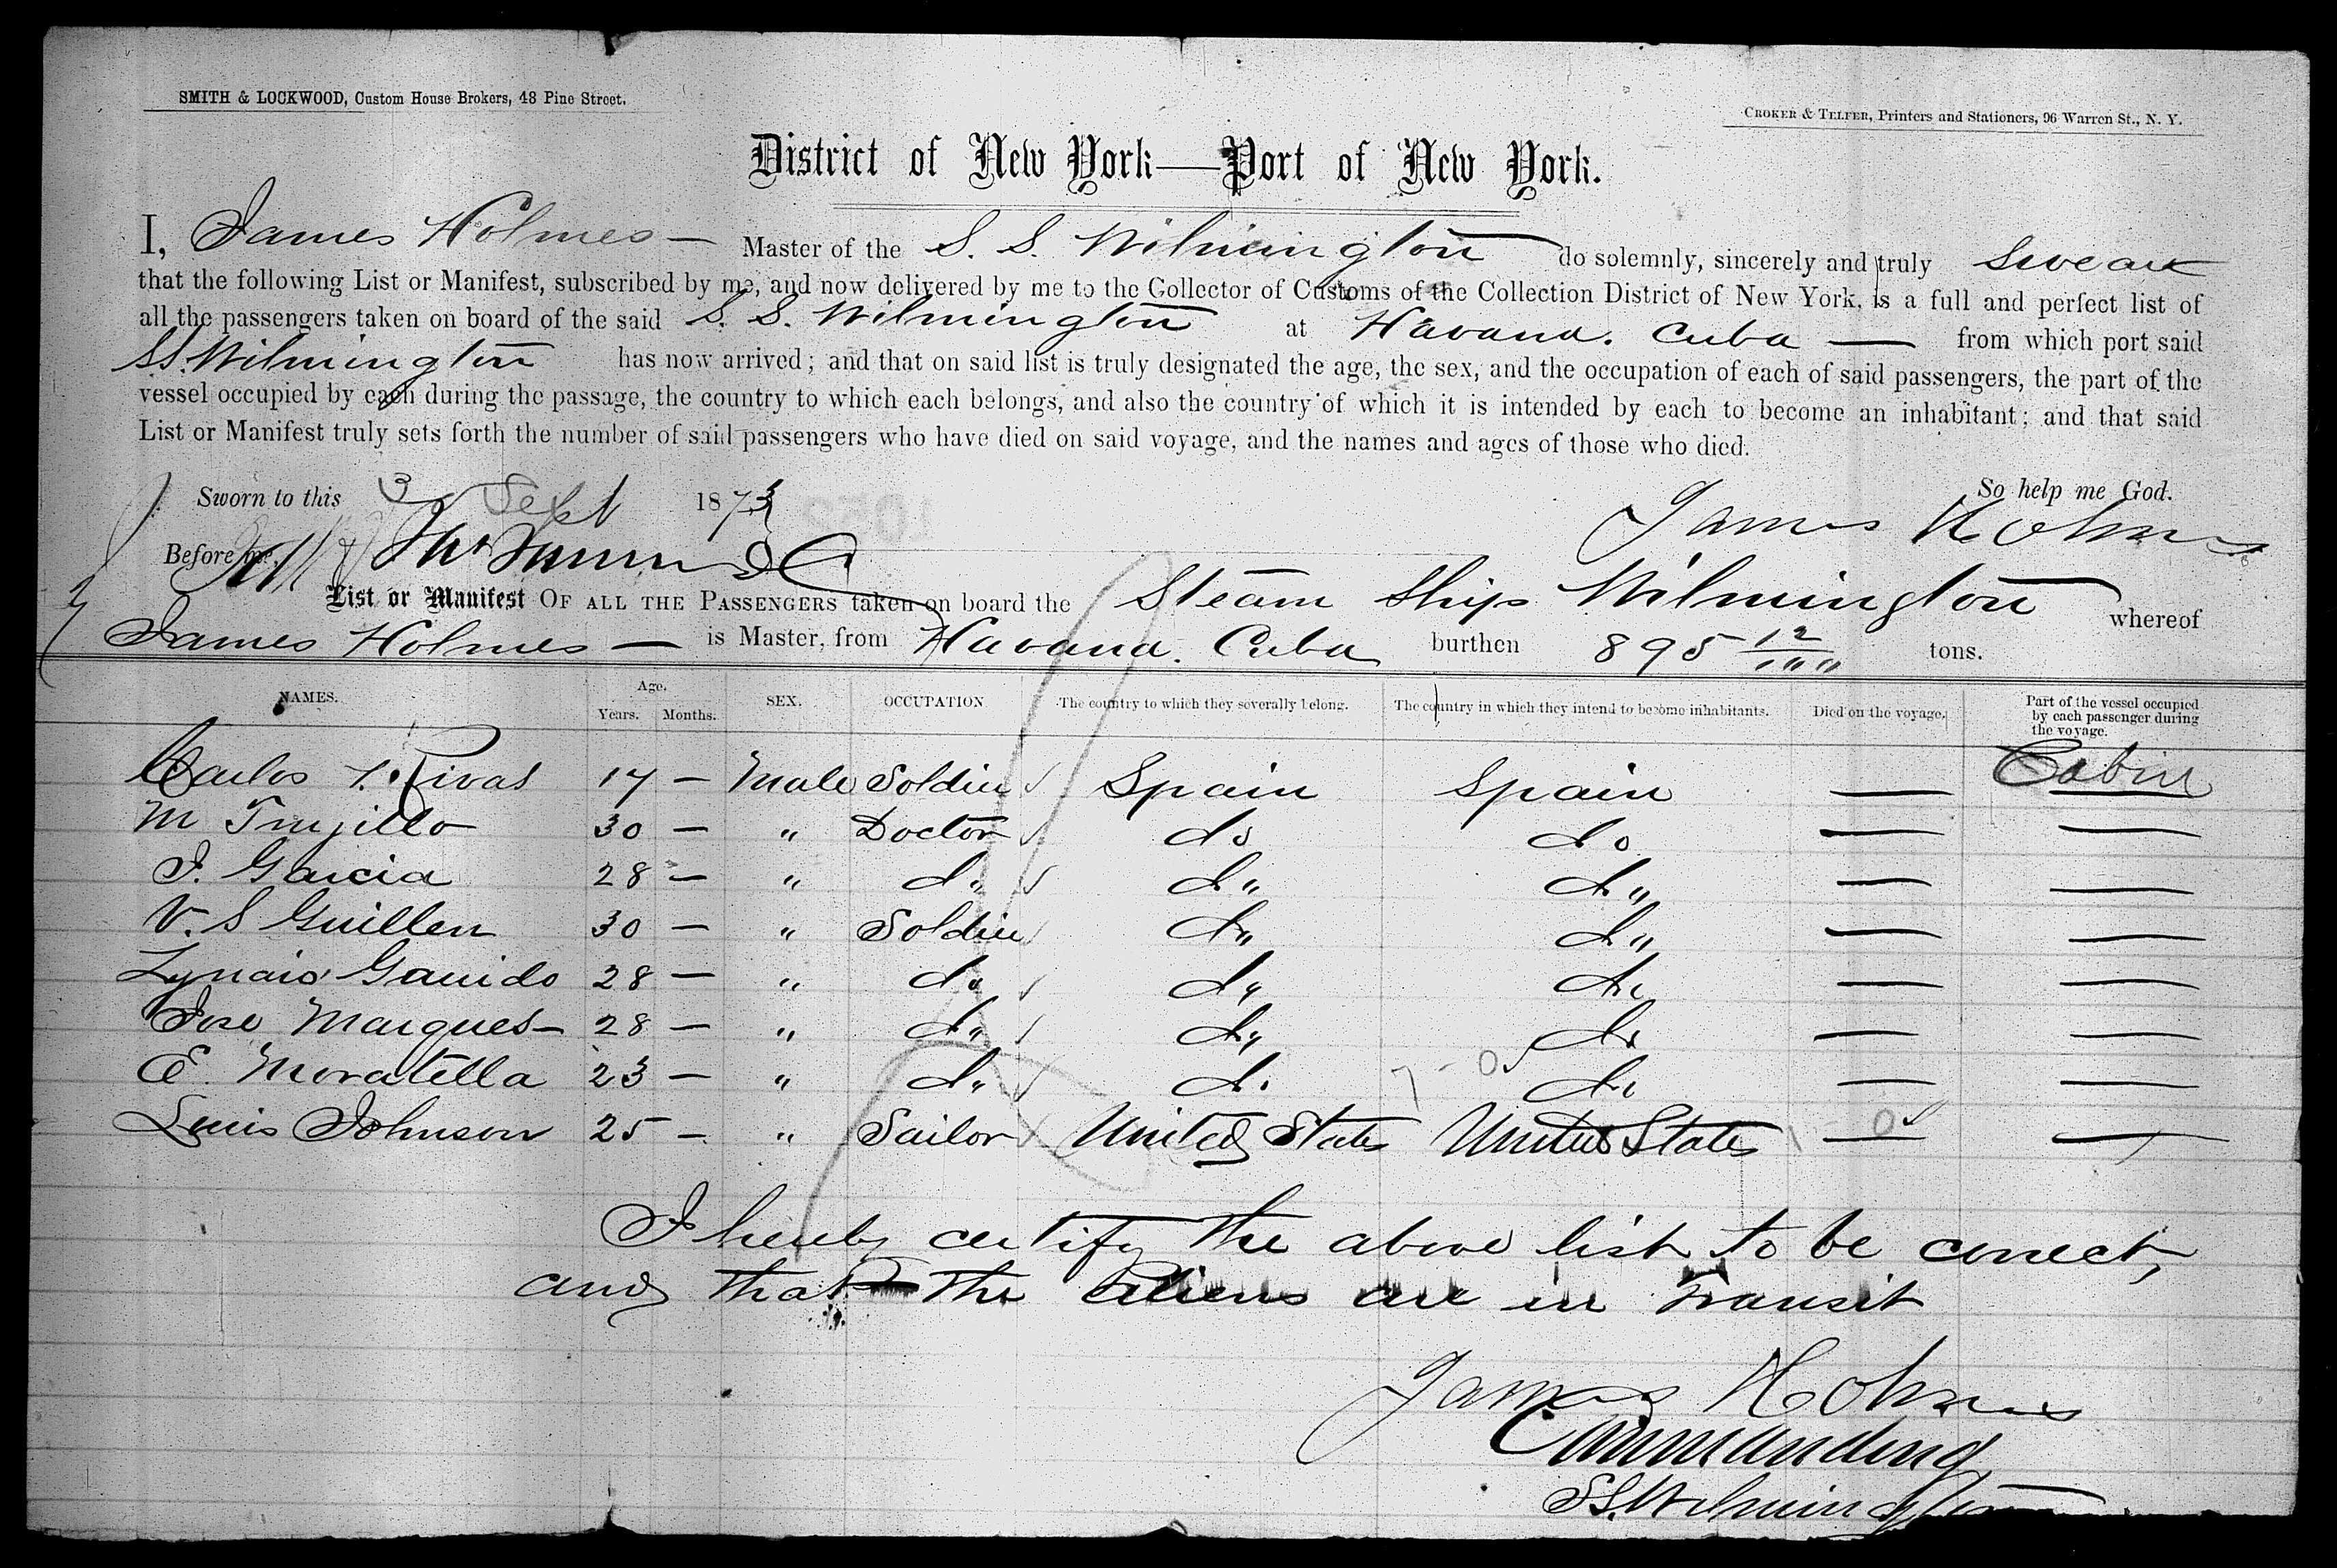 SMITH & LOCKWOOD, Custom House Brokers, 48 Pine Street.
CROKER & TELFER, Printers and Stationers, 96 Warren St., N. Y.
District of New York—Port of New York.
I, James Holmes — Master of the S. S. Wilmington do solemnly, sincerely and truly swear
that the following List or Manifest, subscribed by me, and now delivered by me to the Collector of Customs of the Collection District of New York, is a full and perfect list of
all the passengers taken on board of the said S. S. Wilmington at Havana. Cuba — from which port said
SS. Wilmington has now arrived; and that on said list is truly designated the age, the sex, and the occupation of each of said passengers, the part of the
vessel occupied by each during the passage, the country to which each belongs, and also the country of which it is intended by each to become an inhabitant; and that said
List or Manifest truly sets forth the number of said passengers who have died on said voyage, and the names and ages of those who died.
Sworn to this 3 Sept 1873 So help me God.
James Holmes
Before me,
List or Manifest OF ALL THE PASSENGERS taken on board the Steam Ship Wilmington whereof
James Holmes — is Master, from Havana. Cuba burthen 895 12/100 tons.
NAMES. Age. Years. Months. SEX. OCCUPATION The country to which they severally belong. The country in which they intend to become inhabitants. Died on the voyage. Part of the vessel occupied by each passenger during the voyage.
Carlos Rivas 17 — Male Soldier Spain Spain — Cabin
M Trujillo 30 — " Doctor do do — —
J. Garcia 28 — " do do do — —
V. S Guillen 30 — " Soldier do do — —
Garrido 28 — " do do do — —
Jose Marques — 28 — " do do do — —
E. Moratella 23 — " do do do — —
Luis Johnson 25 — " Sailor United States United States — —
I hereby certify the above list to be correct,
and that the Aliens are in Transit
James Holmes
Commanding
SS. Wilmington